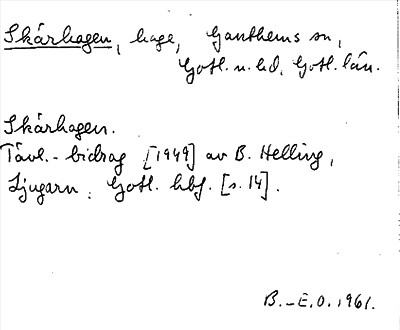 Skårhagen, hage, Ganthems sn,
Gotl. n. hd, Gotl. län.
Skårhagen.
Tävl.-bidrag [1949] av B. Helling,
Ljugarn. Gotl. hbf. [s. 14].
B.-E.O. 1961.